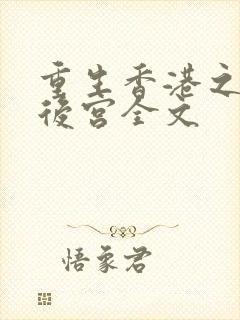 重生香港之
後宮全文
悟象君